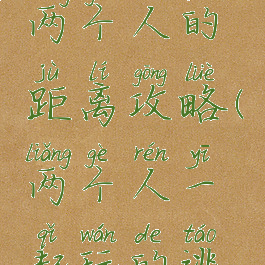 两个人的
jù lí gōng lüè
距离攻略(
liǎng gè rén yī
两个人一
qǐ wán de táo
起玩的逃